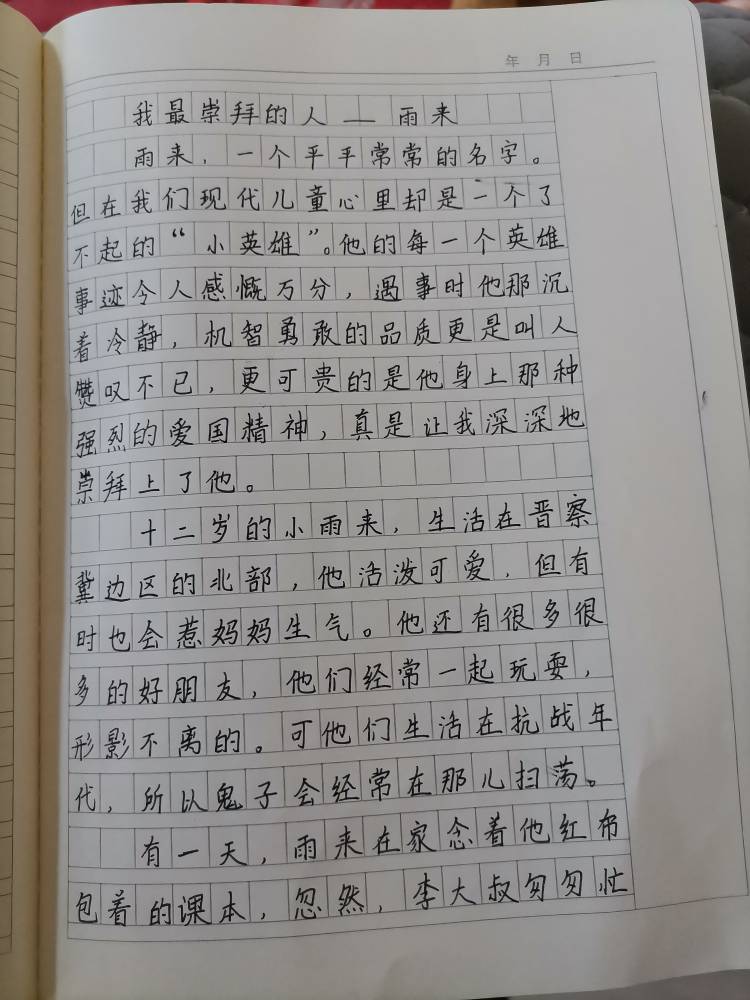 年 月 日
我最崇拜的人——雨来
雨来，一个平平常常的名字。
但在我们现代儿童心里却是一个了
不起的“小英雄”。他的每一个英雄
事迹令人感慨万分，遇事时他那沉
着冷静，机智勇敢的品质更是叫人
赞叹不已，更可贵的是他身上那种
强烈的爱国精神，真是让我深深地
崇拜上了他。
十二岁的小雨来，生活在晋察
冀边区的北部，他活泼可爱，但有
时也会惹妈妈生气。他还有很多很
多的好朋友，他们经常一起玩耍，
形影不离的。可他们生活在抗战年
代，所以鬼子会经常在那儿扫荡。
有一天，雨来在家念着他红布
包着的课本，忽然，李大叔匆匆忙